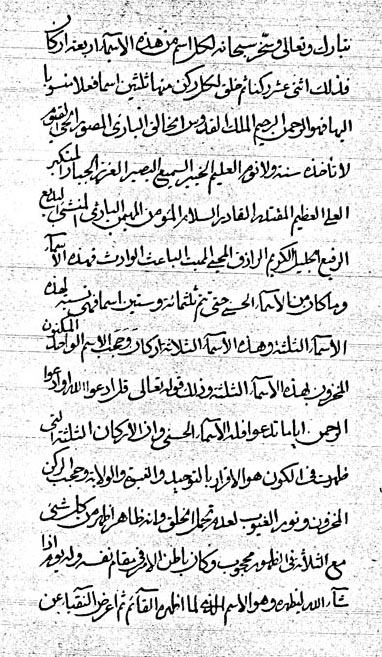 تبارك وتعالى وسخّر سبحانه لكل اسم من هذه الاسماء اربعة اركان
فذلك اثنى عشر ركنا ثم خلق لكل ركن منها ثلثين اسما فعلا منسوبا
اليها فهو الرحمن الرحيم الملك القدوس الخالق البارئ المصور الحي القيوم
لا تأخذه سنة ولا نوم العليم الخبير السميع البصير العزيز الجبار المتكبر
العلي العظيم المقتدر القادر السلام المؤمن المهيمن البارئ المنشئ البديع
الرفيع الجليل الكريم الرازق المحيي المميت الباعث الوارث فهذه الاسماء
وما كان من الاسماء الحسنى حتى تتم ثلثمائة وستين اسما فهي نسبة لهذه
الاسماء الثلثة وهذه الاسماء الثلاثة اركان وحجب الاسم الواحد المكنون
المخزون بهذه الاسماء الثلثة وذلك قوله تعالى قل ادعوا الله او ادعوا
الرحمن اياما تدعوا فله الاسماء الحسنى وان الاركان الثلثة التي
ظهرت في الكون هو الاقرار بالتوحيد والنبوة والولاية وحجب الركن
المخزون ونور الغيوب لعدم تحمل الخلق وانه ظاهر اظهر من كل شئ
مع الثلاثة في الظهور محجوب وكان باطن الامر في مقام نفسه وله يوم اذا
شاء الله ليظهره وهو الاسم الذي لما اظهره القآئم ثم اعرض النقباء عن